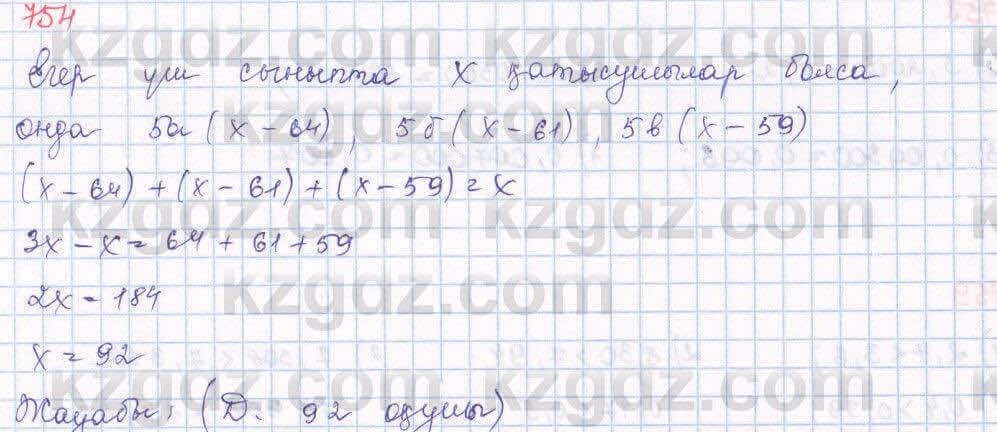 754
Егер үш сыныпта x қатысушылар болса,
онда 5а (x - 64), 5б (x - 61), 5в (x - 59)
(x - 64) + (x - 61) + (x - 59) = x
3x - x = 64 + 61 + 59
2x = 184
x = 92
Жауабы: (D. 92 оқушы)
kzgdz.com kzgdz.com
kzgdz.com
kzgdz.com kzgdz.com
kzgdz.com
kzgdz.com kzgdz.com